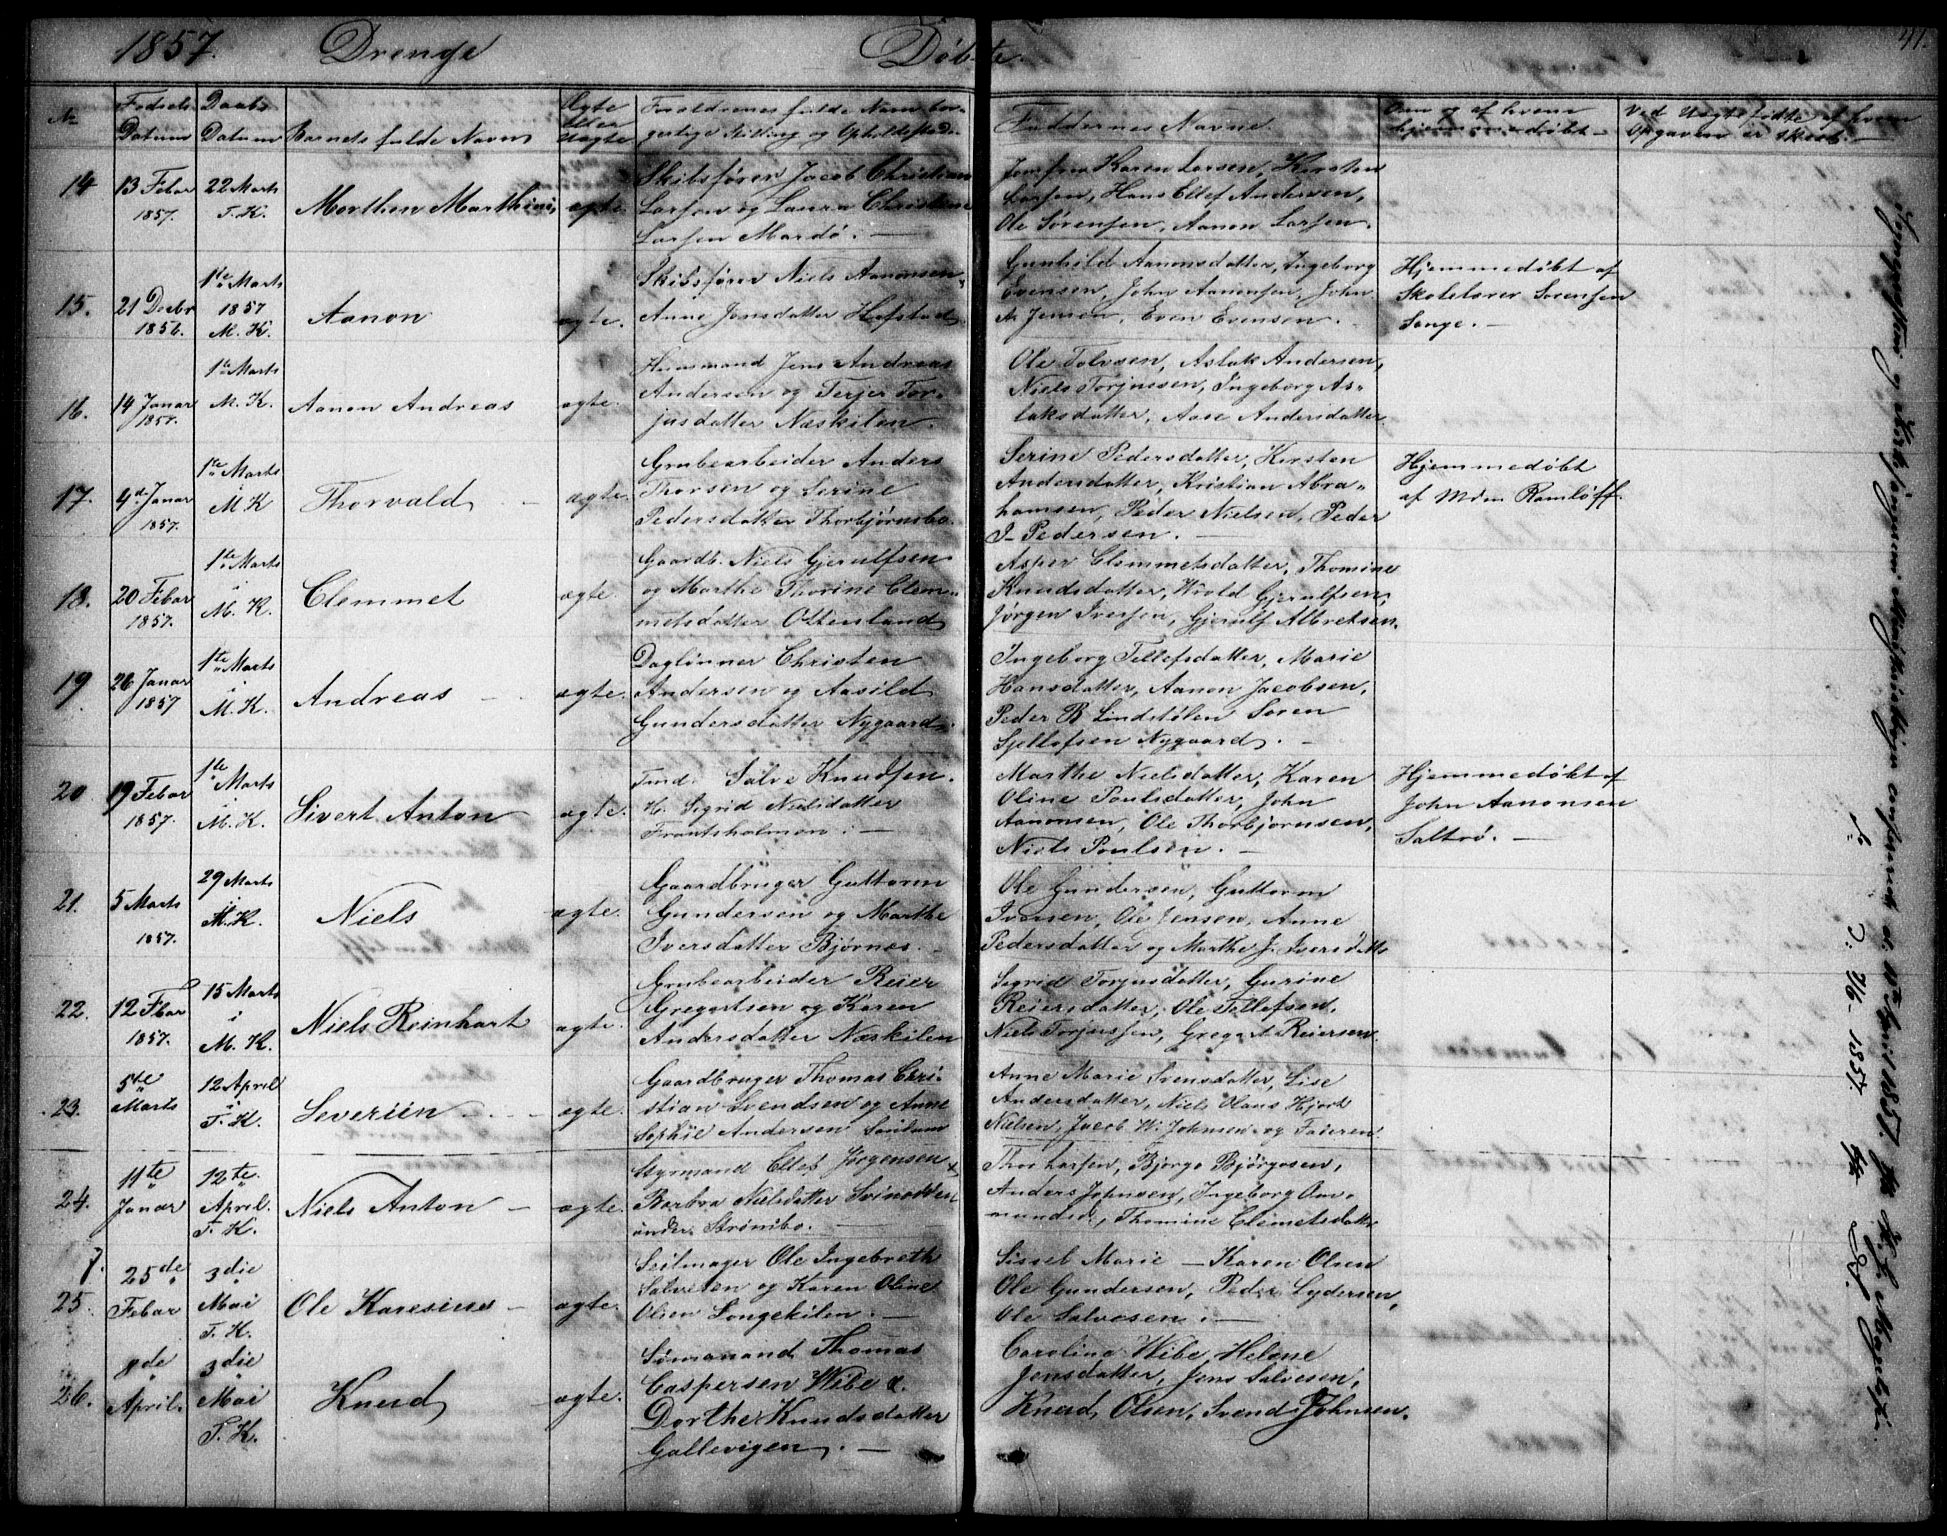 1857. Drenge Døbte. 41.
No
Fødsels Datum
Daabs Datum
Barnets fulde Navn
Ægte eller Uægte
Forældrenes fulde Navn, borgerlige Stilling og Opholdssted.
Faddernes Navne
Om og af hvem hjemmedøbt
Ved Uægtefødte af hvem Opgaven er skeet.
14 13 Febar 1857. 22 Marts T. K. Morthen Marthini, ægte.
Skibsfører Jacob Christian
Larsen og Laura Christine
Larsen Mardø. —
Jomfru Karen Larsen, Kirsten
Larsen, Hans Ellef Andersen,
Ole Sørensen, Aanon Larsen.
15. 21 Decbr 1856. 1ste Marts 1857 M. K. Aanon ægte.
Skibsfører Niels Aanonsen,
Anne Jensdatter Hafstad
Gunhild Aanonsdatter, Ingeborg
Evensen, John Aanonsen, John
A. Jensen, Even Evensen.
Hjemmedøbt af
Skolelærer Sørensen
Songe. —
16. 14 Januar 1857. 1te Marts M. K. Aanon Andreas ægte.
Huusmand Jens Andreas
Andersen og Terjer Tor-
jusdatter Næskilen.
Ole Tolvsen, Aslak Andersen,
Niels Torjussen, Ingeborg As-
laksdatter, Aase Andersdatter
17. 4de Januar 1857. 1ste Marts M K Thorvald — ægte.
Grubearbeider Anders
Thorsen og Serine
Pedersdatter Thorbjørnsbo.
Serine Pedersdatter, Kirsten
Andersdatter, Kristian Abra-
hamsen, Peder Nielsen, Peder
I- Pedersen. —
Hjemmedøbt
af Mdm Ramløff.
18. 20 Febar 1857. 1ste Marts i M. K. Clemmet ægte.
Gaardb. Niels Gjerulfsen
og Marthe Thorine Clem-
metsdatter Ottersland
Asper Clemmetsdatter, Thomine
Knudsdatter, Wrold Gjerulfsen,
Jørgen Iversen, Gjerulf Albretsen.
19 26 Januar 1857 1ste Marts i M. K. Andreas — ægte.
Daglønner Christen
Andersen og Aasild
Gundersdatter Nygaard.
Ingeborg Tellefsdatter, Marie
Hansdatter, Aanon Jacobsen,
Peder B Lindstølen Søren
Tellefsen Nygaard. —
20 19 Febar 1857. 1ste Marts i M. K. Sivert Anton ægte.
Tmd. Salve Knudsen.
H. Sigrid Nielsdatter
Frantsholmen : —
Marthe Nielsdatter, Karen
Oline Poulsdatter, John
Aanonsen, Ole Thorbjørnsen,
Niels Poulsen. —
Hjemmedøbt af
John Aanonsen
Saltrø. —
21. 5 Marts 1857. 29 Marts i M. K. Niels ægte.
Gaardbruger Guttorm
Gundersen og Marthe
Iversdatter Bjørnes. —
Ole Gundersen, Guttorm
Iversen, Ole Jensen, Anne
Pedersdatter og Marthe J. Iversdatt
22. 12 Fbar 1857. 15 Marts i M. K. Niels Reinhart ægte.
Grubearbeider Reier
Gregertsen og Karen
Andersdatter Næskilen
Sigrid Torjusdatter, Gurine
Reiersdatter, Ole Tellefsen,
Niels Torjussen, Gregert Reiersen
23. 5te Marts 12 April i T. K. Severiin — ægte.
Gaardbruger Thomas Chri-
stian Svendsen og Anne
Sophie Andersen
Anne Marie Svensdatter, Lise
Andersdatter, Niels Claus Hjort
Nielsen, Jacob W. Johnsen og Faderen
24. 11te Januar 12te April. T. K. Niels Anton — ægte.
Styrmand Ellef Jørgensen
Barbra Nielsdatter Svinodden
under Strømsbo. —
Thor Larsen, Bjørge Bjørgesen,
Anders Johnsen, Ingeborg Am-
mundsd, Thomine Clemetsdatter
25. 25de Febar 3die Mai T. K. Ole Karesius — ægte.
Seilmager Ole Ingebreth
Salvesen og Karen Oline
Olsen Songekilen. —
Sissel Marie — Karen Olsen
Ole Gundersen, Peder Lydersen,
Ole Salvesen : —
26. 8de April. 3die Mai T. K. Knud ægte.
Sømanand Thomas
Caspersen Wibe &.
Dorthe Knudsdatter
Gallevigen. —
Caroline Wibe, Helene
Jensdatter, Jens Salvesen,
Knud Olsen, Svend Johnsen.